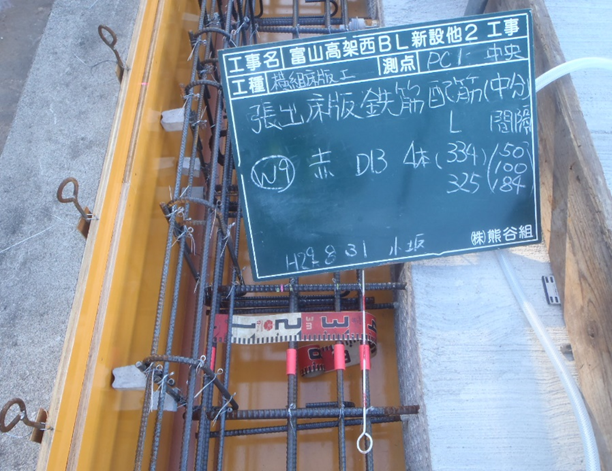 工事名 富山高架西BL新設他2 工事
工種 横組床版工 測点 PC1 中央
張出床版鉄筋配筋(中分)
L 間隔
W9 赤 D13 4本(334 (150
325 100
184
H29 8 31 小坂
(株)熊谷組
1 2 3m 3